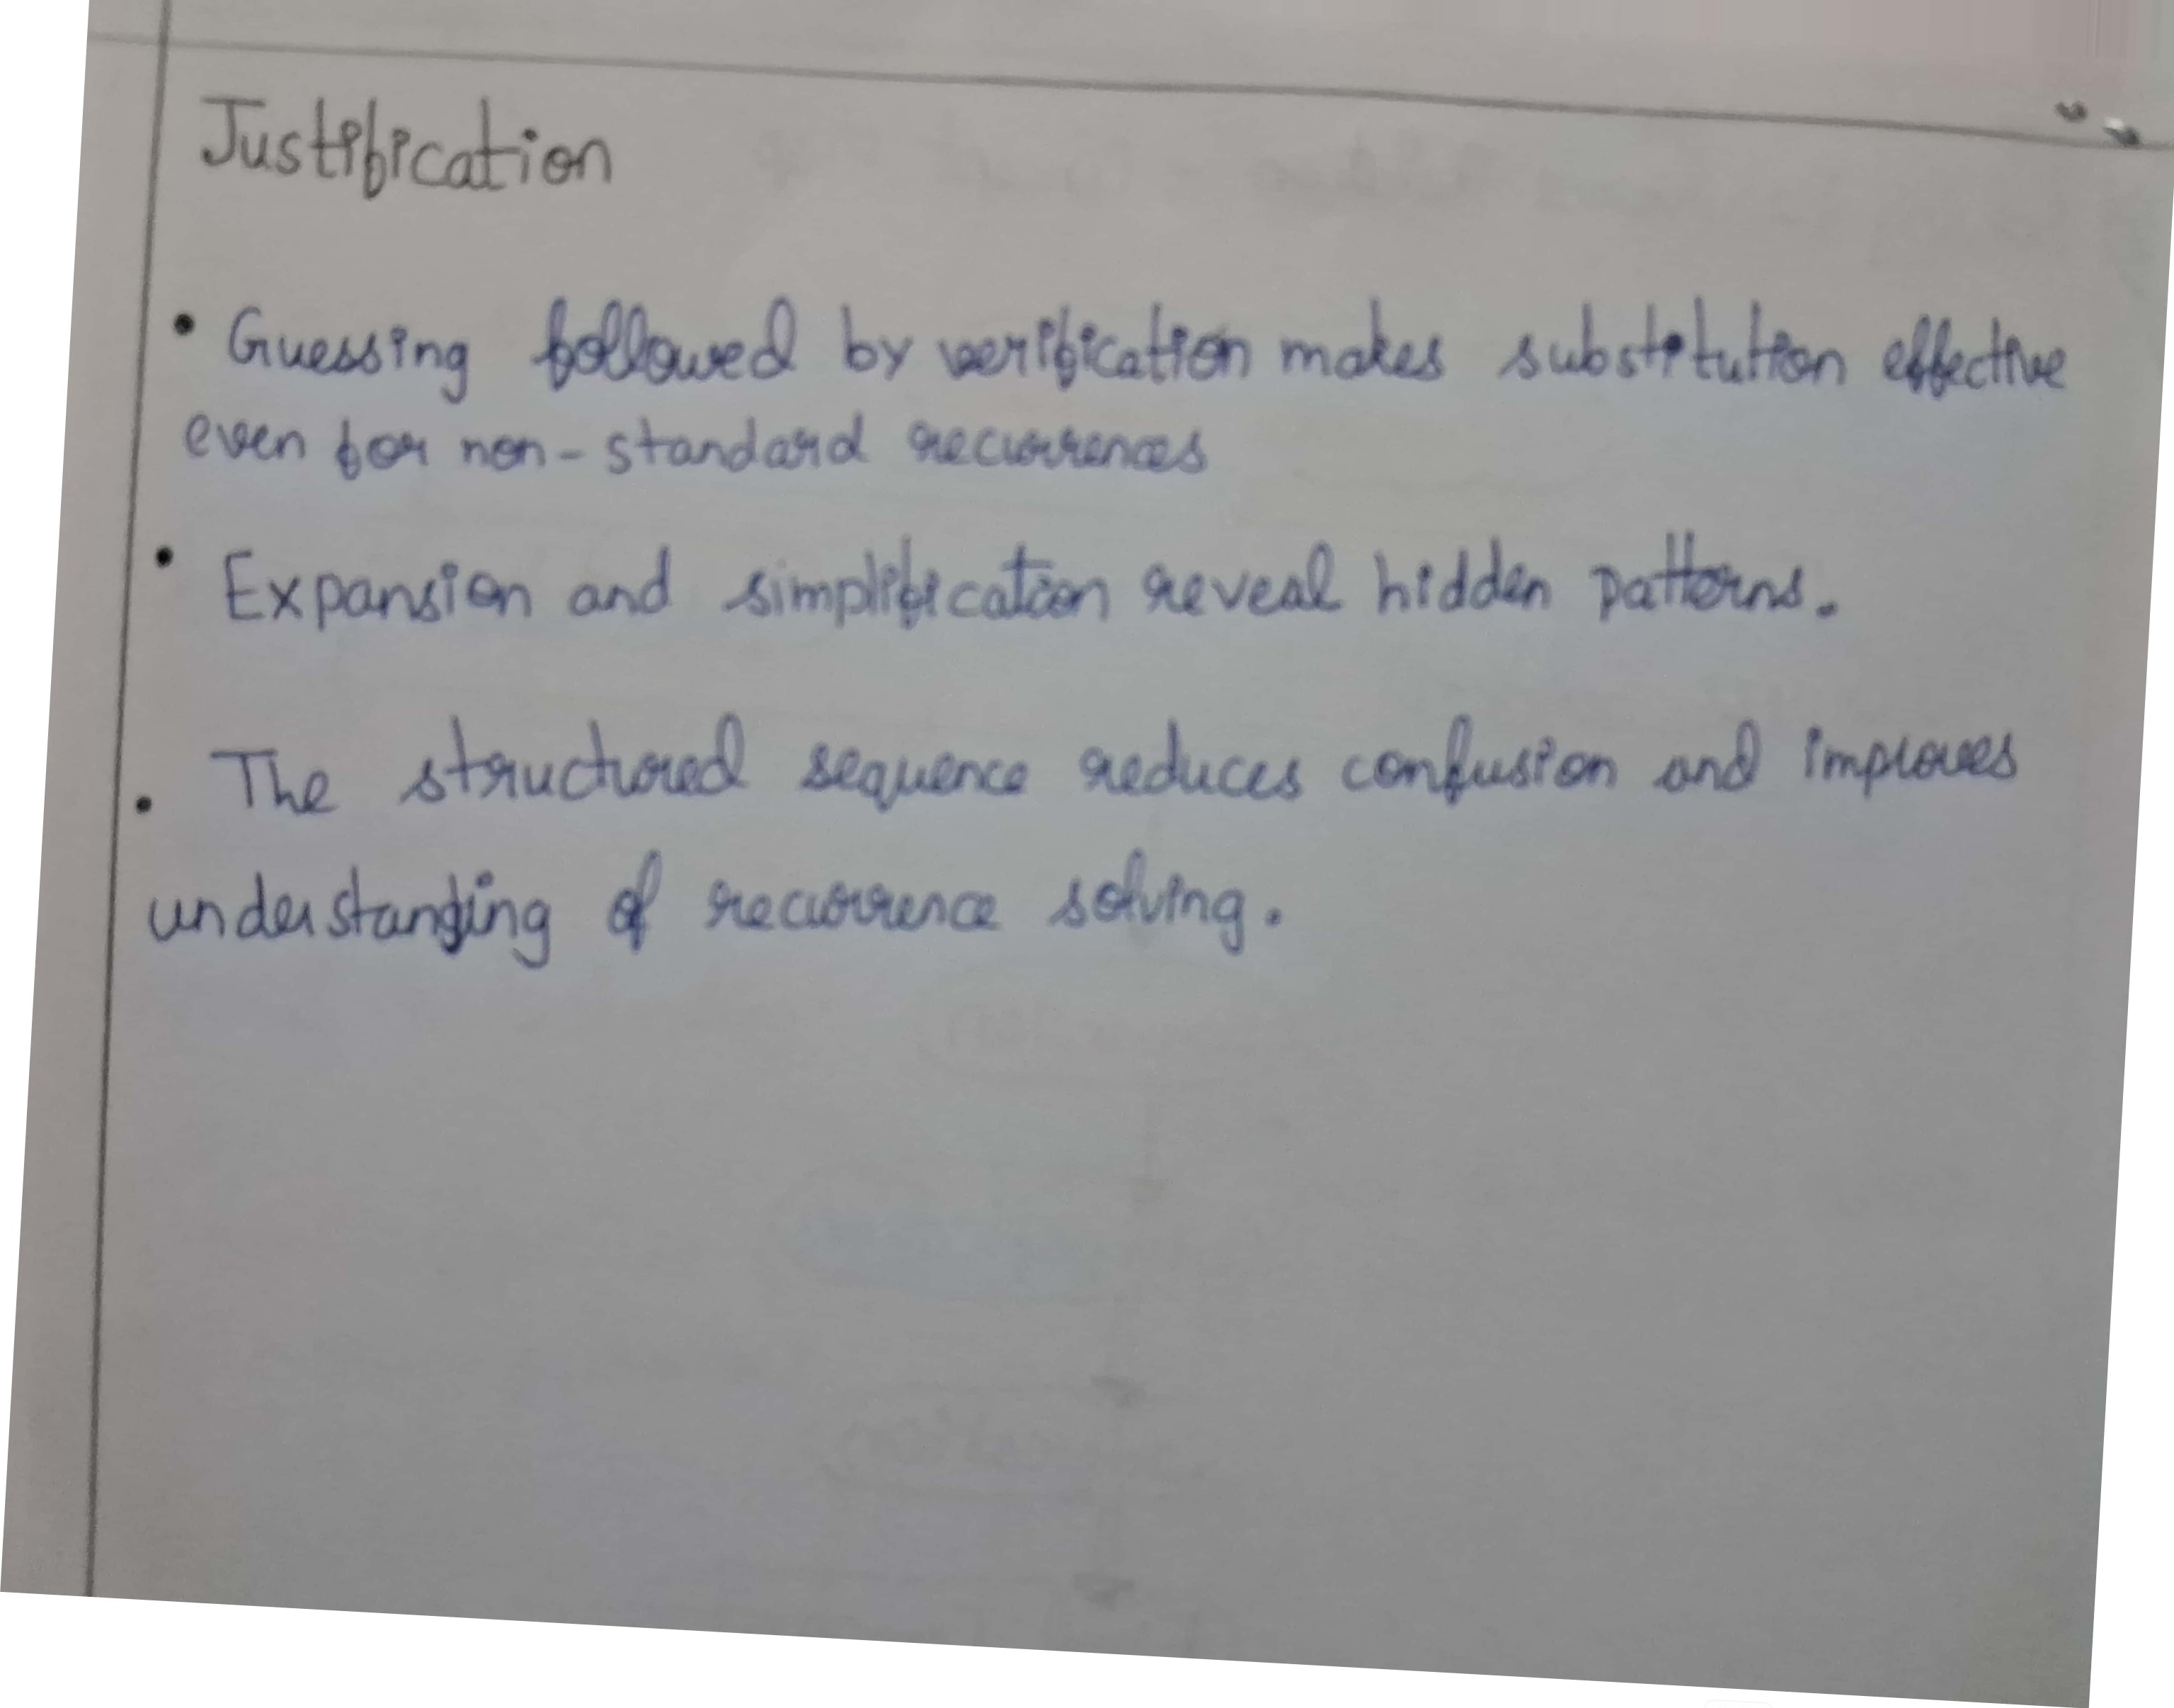 Justification
• Guessing followed by verification makes substitution effective
even for non-standard recurrences
• Expansion and simplification reveal hidden patterns.
• The structured sequence reduces confusion and improves
understanding of recurrence solving.